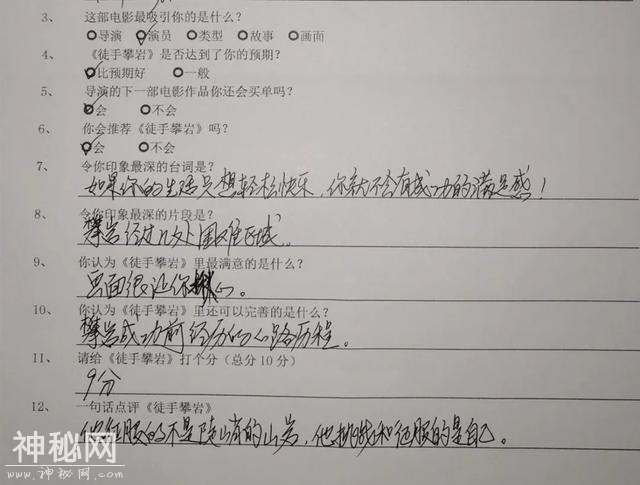 3、 这部电影最吸引你的是什么？
○导演 ○演员 ○类型 ○故事 ○画面
4、 《徒手攀岩》是否达到了你的预期？
○比预期好 ○一般
5、 导演的下一部电影作品你还会买单吗？
○会 ○不会
6、 你会推荐《徒手攀岩》吗？
○会 ○不会
7、 令你印象最深的台词是？
如果你的生活只想轻松快乐，你就不会有成功的满足感！
8、 令你印象最深的片段是？
攀岩经过几处困难区域。
9、 你认为《徒手攀岩》里最满意的是什么？
画面很让你心。
10、 你认为《徒手攀岩》里还可以完善的是什么？
攀岩成功前经历的心路历程。
11、 请给《徒手攀岩》打个分（总分 10 分）
9分
12、 一句话点评《徒手攀岩》
他征服的不是陡峭的山岩，他挑战和征服的是自己。
神秘网
www.神秘网.com